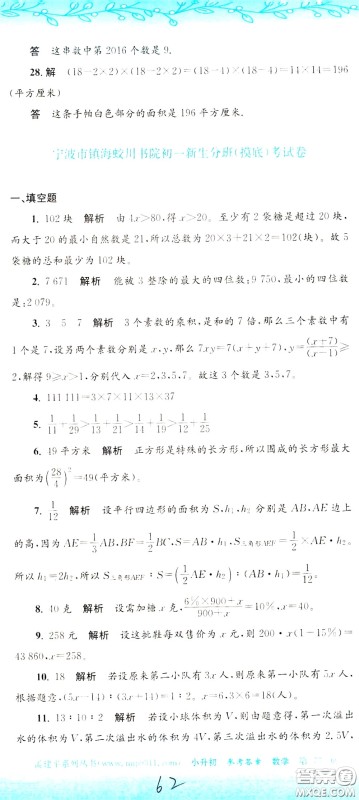 答　这串数中第2016个数是9.
28.解　(18－2×2)×(18－2×2)－(4－4)×4＝14×14＝196
(平方厘米)
答　这条手帕白色部分的面积是196平方厘米.
宁波市镇海蛟川书院初一新生分班(摸底)考试卷
一、填空题
1. 102块　解析　由4x＞80，得x＞20. 至少有2袋糖的块数超过20，
而大于20的最小自然数是21，所以总数为20×2＋21×2＋20＝102(块). 故5
袋糖的总和最少为102块.
2. 7 671　解析　能被3整除的最大的四位数：9 750，最小的四位数
是：2 079.
3. 3　5　7　解析　3个素数的乘积，是和的7倍，那么三个素数中有
1个是7，设另两个素数分别是x，y，那么7xy＝7(x＋y＋7)，y＝(x＋7)/(x－1)≥
2，解得9≥x＞1，分别代入x＝2，3，5，7. 故这三个素数是3，5，7.
4. 111 111＝3×7×11×13×37
5. 1/11＋1/31＞1/19＞1/25＋1/29
6. 49平方米　解析　正方形是特殊的长方形，所以围成的长方形最大
面积为(28/4)²＝49(平方米).
7. 1/12　解析　设平行四边形的面积为S，h₁，h₂ 分别是AB，AE边上
的高，因为AE＝1/3AB，BF＝1/2BC，S＝AB·h₁，S三角形AEF＝1/2AE·h₂.
所以h₁＝2h₂，所以S三角形AEF：S＝(1/2AE·h₂)：(AB·h₁)＝1/12.
8. 40克　解析　设需加糖x克，(6%×900＋x)/(900＋x)＝10%，x＝40.
9. 258元　解析　设这批鞋每双售价为x元，则200x(1－15%)＝
43 860，x＝258.
10. 18　解析　若设原来第二小队有3x人，则原来第一小队有5x人，
根据题意，(5x－14)：(3x＋14)＝1：2，x＝6.
11. 10：5：13　解析　若设容器的体积为5V，由题意，第一次溢出
水的体积为V，第二次溢出水的体积为1.5V，第三次溢出水的体积为2.5V.
小升初　参考答案　数学
62